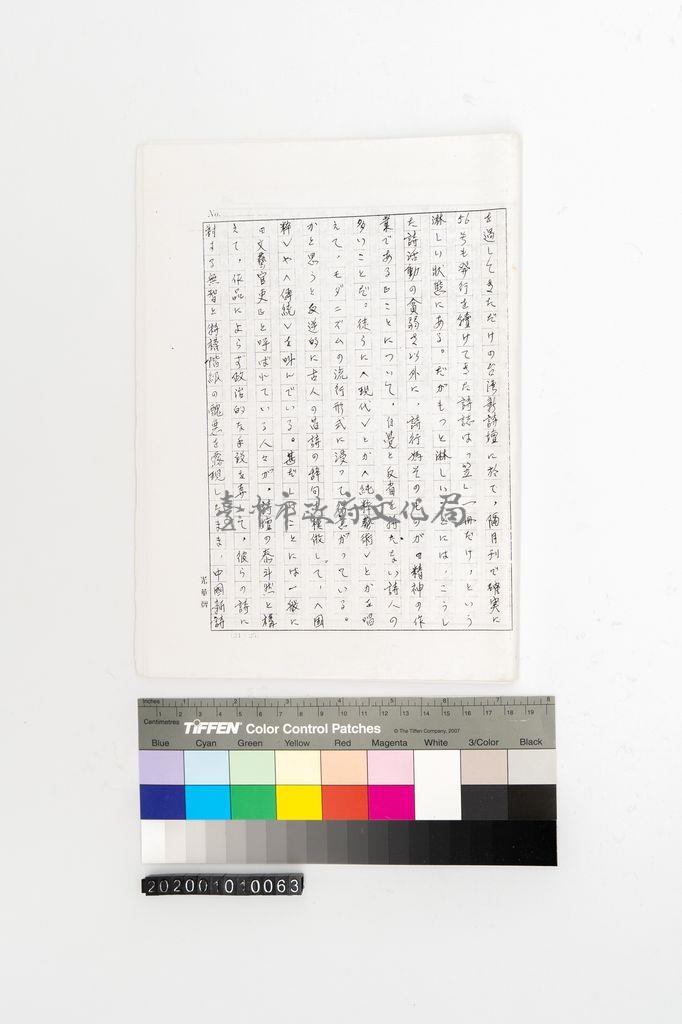 No.
を過してきただけの台湾新詩壇に於て、隔月刊で確実に
56号も発行を続けてきた詩誌は「笠」一冊だけ、という
淋しい状態にある。だがもっと淋しいことには、こうし
た詩活動の貧弱さ以外に、詩行為そのものが『精神の作
業である』ことについて、自覚と反省を持たない詩人の
多いことだ。徒らに<現代>とか<純粋藝術>とかを唱
えて、モダニズムの流行形式に浸って
かと思うと反逆的に古人の旧詩の辞句を して、<国
粋>や<傳統>を叫んでいる。甚だしいことには一般に
『文藝官吏』と呼ばれている人々が、詩壇の泰斗然と構
えて、作品によらず政治的な手段を弄して、彼らの詩に
対する無智と特権階級の醜悪を露呈したまま、中国新詩
光華牌
臺中市政府文化局
inches 1 2 3 4 5 6 7 8
Centimetres 1 2 3 4 5 6 7 8 9 10 11 12 13 14 15 16 17 18 19
TIFFEN Color Control Patches © The Tiffen Company, 2007
Blue Cyan Green Yellow Red Magenta White 3/Color Black
202001010063